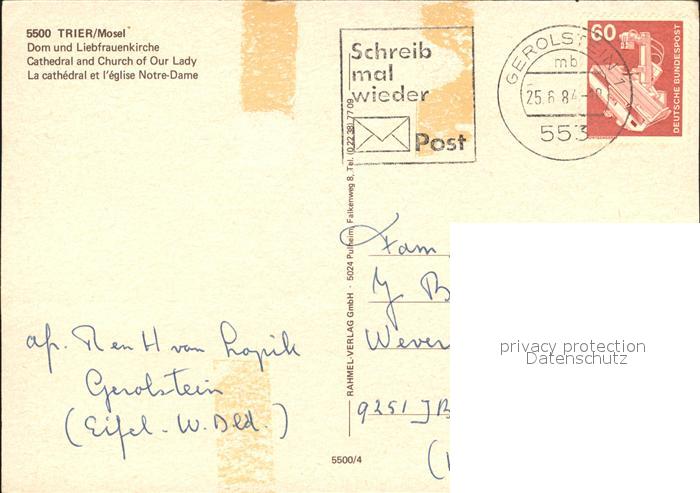 5500 TRIER/Mosel
Dom und Liebfrauenkirche
Cathedral and Church of Our Lady
La cathédral et l'église Notre-Dame
Schreib
mal
wieder
Post
GEROLSTEIN 1
mb
25.6.84-18
553
60
DEUTSCHE BUNDESPOST
RAHMEL-VERLAG GmbH · 5024 Pulheim, Falkenweg 8, Tel. (0 22 38) 77 09
Fam
Y B
Wever
9251 JB
(
afz. R en H van Lopik
Gerolstein
(Eifel - W. Dld.)
5500/4
privacy protection
Datenschutz